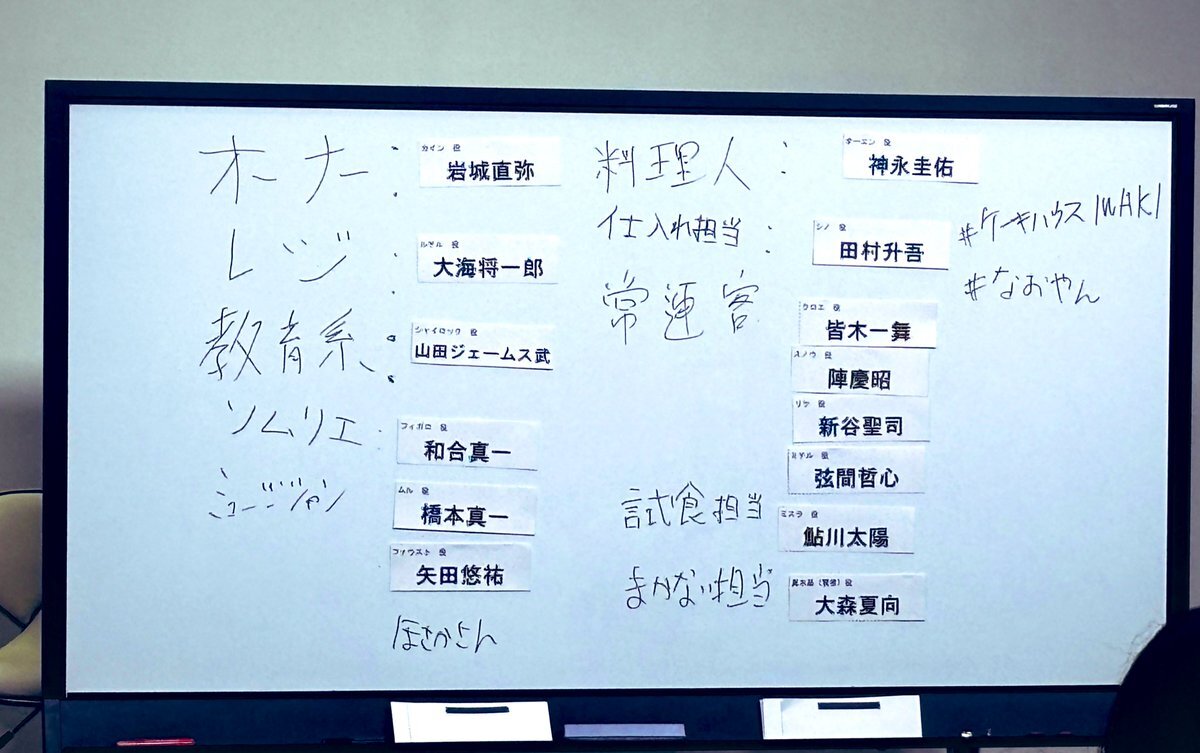 オーナー：
カイン 役
岩城直弥
レジ：
ルチル 役
大海将一郎
教育系：
シャイロック 役
山田ジェームス武
ソムリエ：
フィガロ 役
和合真一
ムル 役
橋本真一
ファウスト 役
矢田悠祐
ほさかさん
料理人：
オーエン 役
神永圭佑
仕入れ担当：
シノ 役
田村升吾
#ケーキハウスIWAKI
#なおやん
常連客
クロエ 役
皆木一舞
スノウ 役
陣慶昭
リケ 役
新谷聖司
ミチル 役
弦間哲心
試食担当
ミスラ 役
鮎川太陽
まかない担当
大森夏向